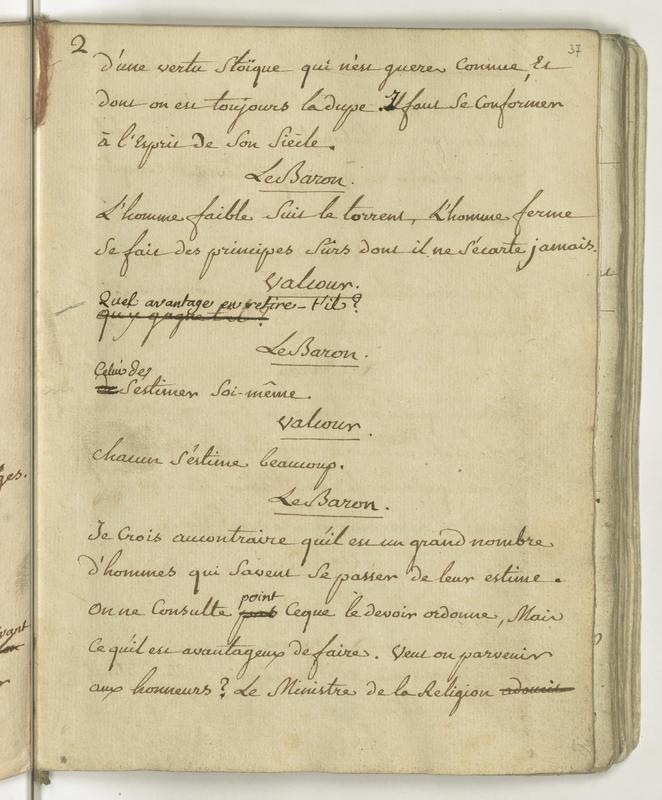 2
37
d'une vertu Stoïque qui n'est guere Connue, Et
dont on est toujours la dupe. Il faut Se Conformer
à l'Esprit de Son Siécle.
Le Baron.
L'homme faible Suit le torrent, L'homme ferme
Se fait des principes Sûrs dont il ne S'écarte jamais.
Valcour.
Quel avantage en retire-t'il?
qu'y gagne t'il!
Le Baron.
Celui de
S'estimer Soi-même.
Valcour.
chacun S'estime beaucoup.
Le Baron.
Je Crois aucontraire qu'il est un grand nombre
d'hommes qui Savent Se passer de leur estime.
point
On ne Consulte pas Ceque le devoir ordonne, Mais
Ce qu'il est avantageux de faire. Veut on parvenir
aux honneurs? Le Ministre de la Religion
ges.